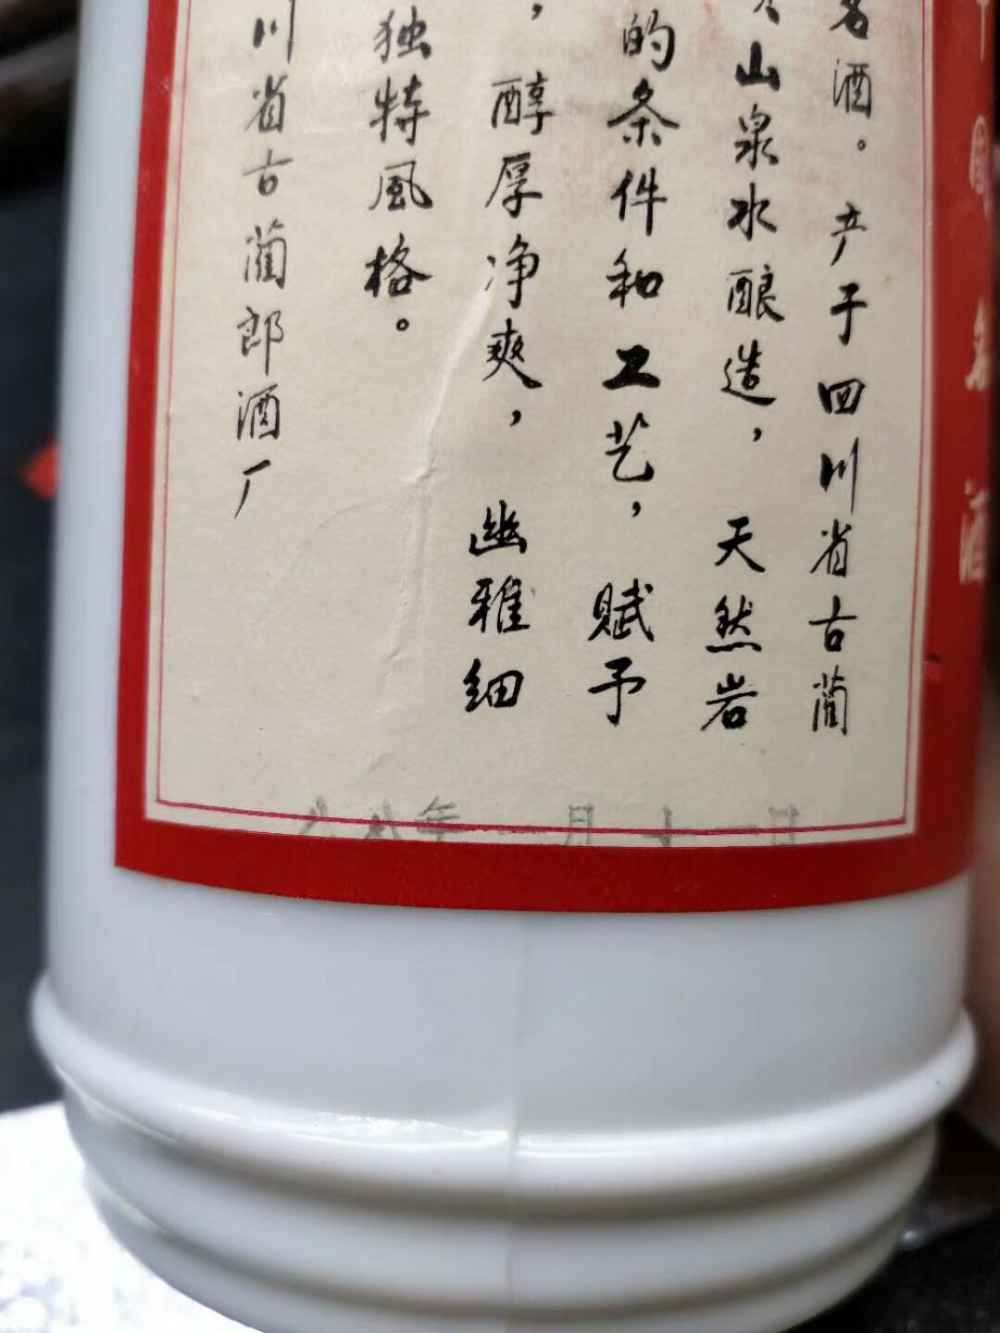 名酒。产于四川省古蔺
山泉水酿造，天然岩
的条件和工艺，赋予
，醇厚净爽，幽雅细
独特風格。
川省古蔺郎酒厂
八八年一月十一日
名酒